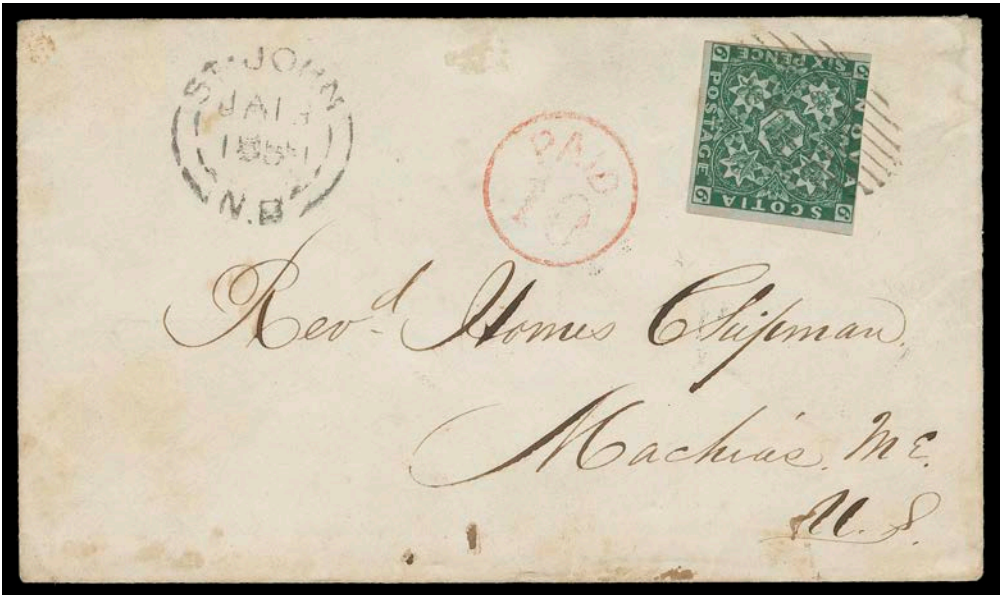 ST. JOHN
JA 13
N.B
PAID
10
SIX PENCE
NOVA
SCOTIA
POSTAGE
6 6 6 6
Revd. Homes Chipman.
Machias. Me.
U.S.